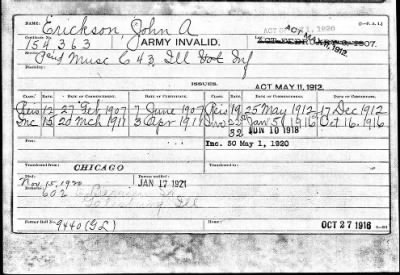 Erickson, John A
154363
ARMY INVALID.
ACT MAY 11, 1912.
ACT FEBRUARY 6, 1907.
Musc C 43, Ill Vol Inf
ISSUES.
ACT MAY 11, 1912.
CLASS. RATE. DATE OF COMMENCEMENT. DATE OF CERTIFICATE. CLASS. RATE. DATE OF COMMENCEMENT. DATE OF CERTIFICATE.
Reis 12 27 Feb 1907 7 June 1907 Reis 19 25 May 1912 17 Dec 1912
Inc 15 20 Mch 1911 3 Apr 1911 Jan 5 1916 Oct 16. 1916
32 JUN 10 1918
Inc. 50 May 1, 1920
Transferred from CHICAGO
Died Nov. 15, 1920 JAN 17 1921
602
Galesburg Ill
Former Roll No. 9440 (GL) Home: OCT 27 1916